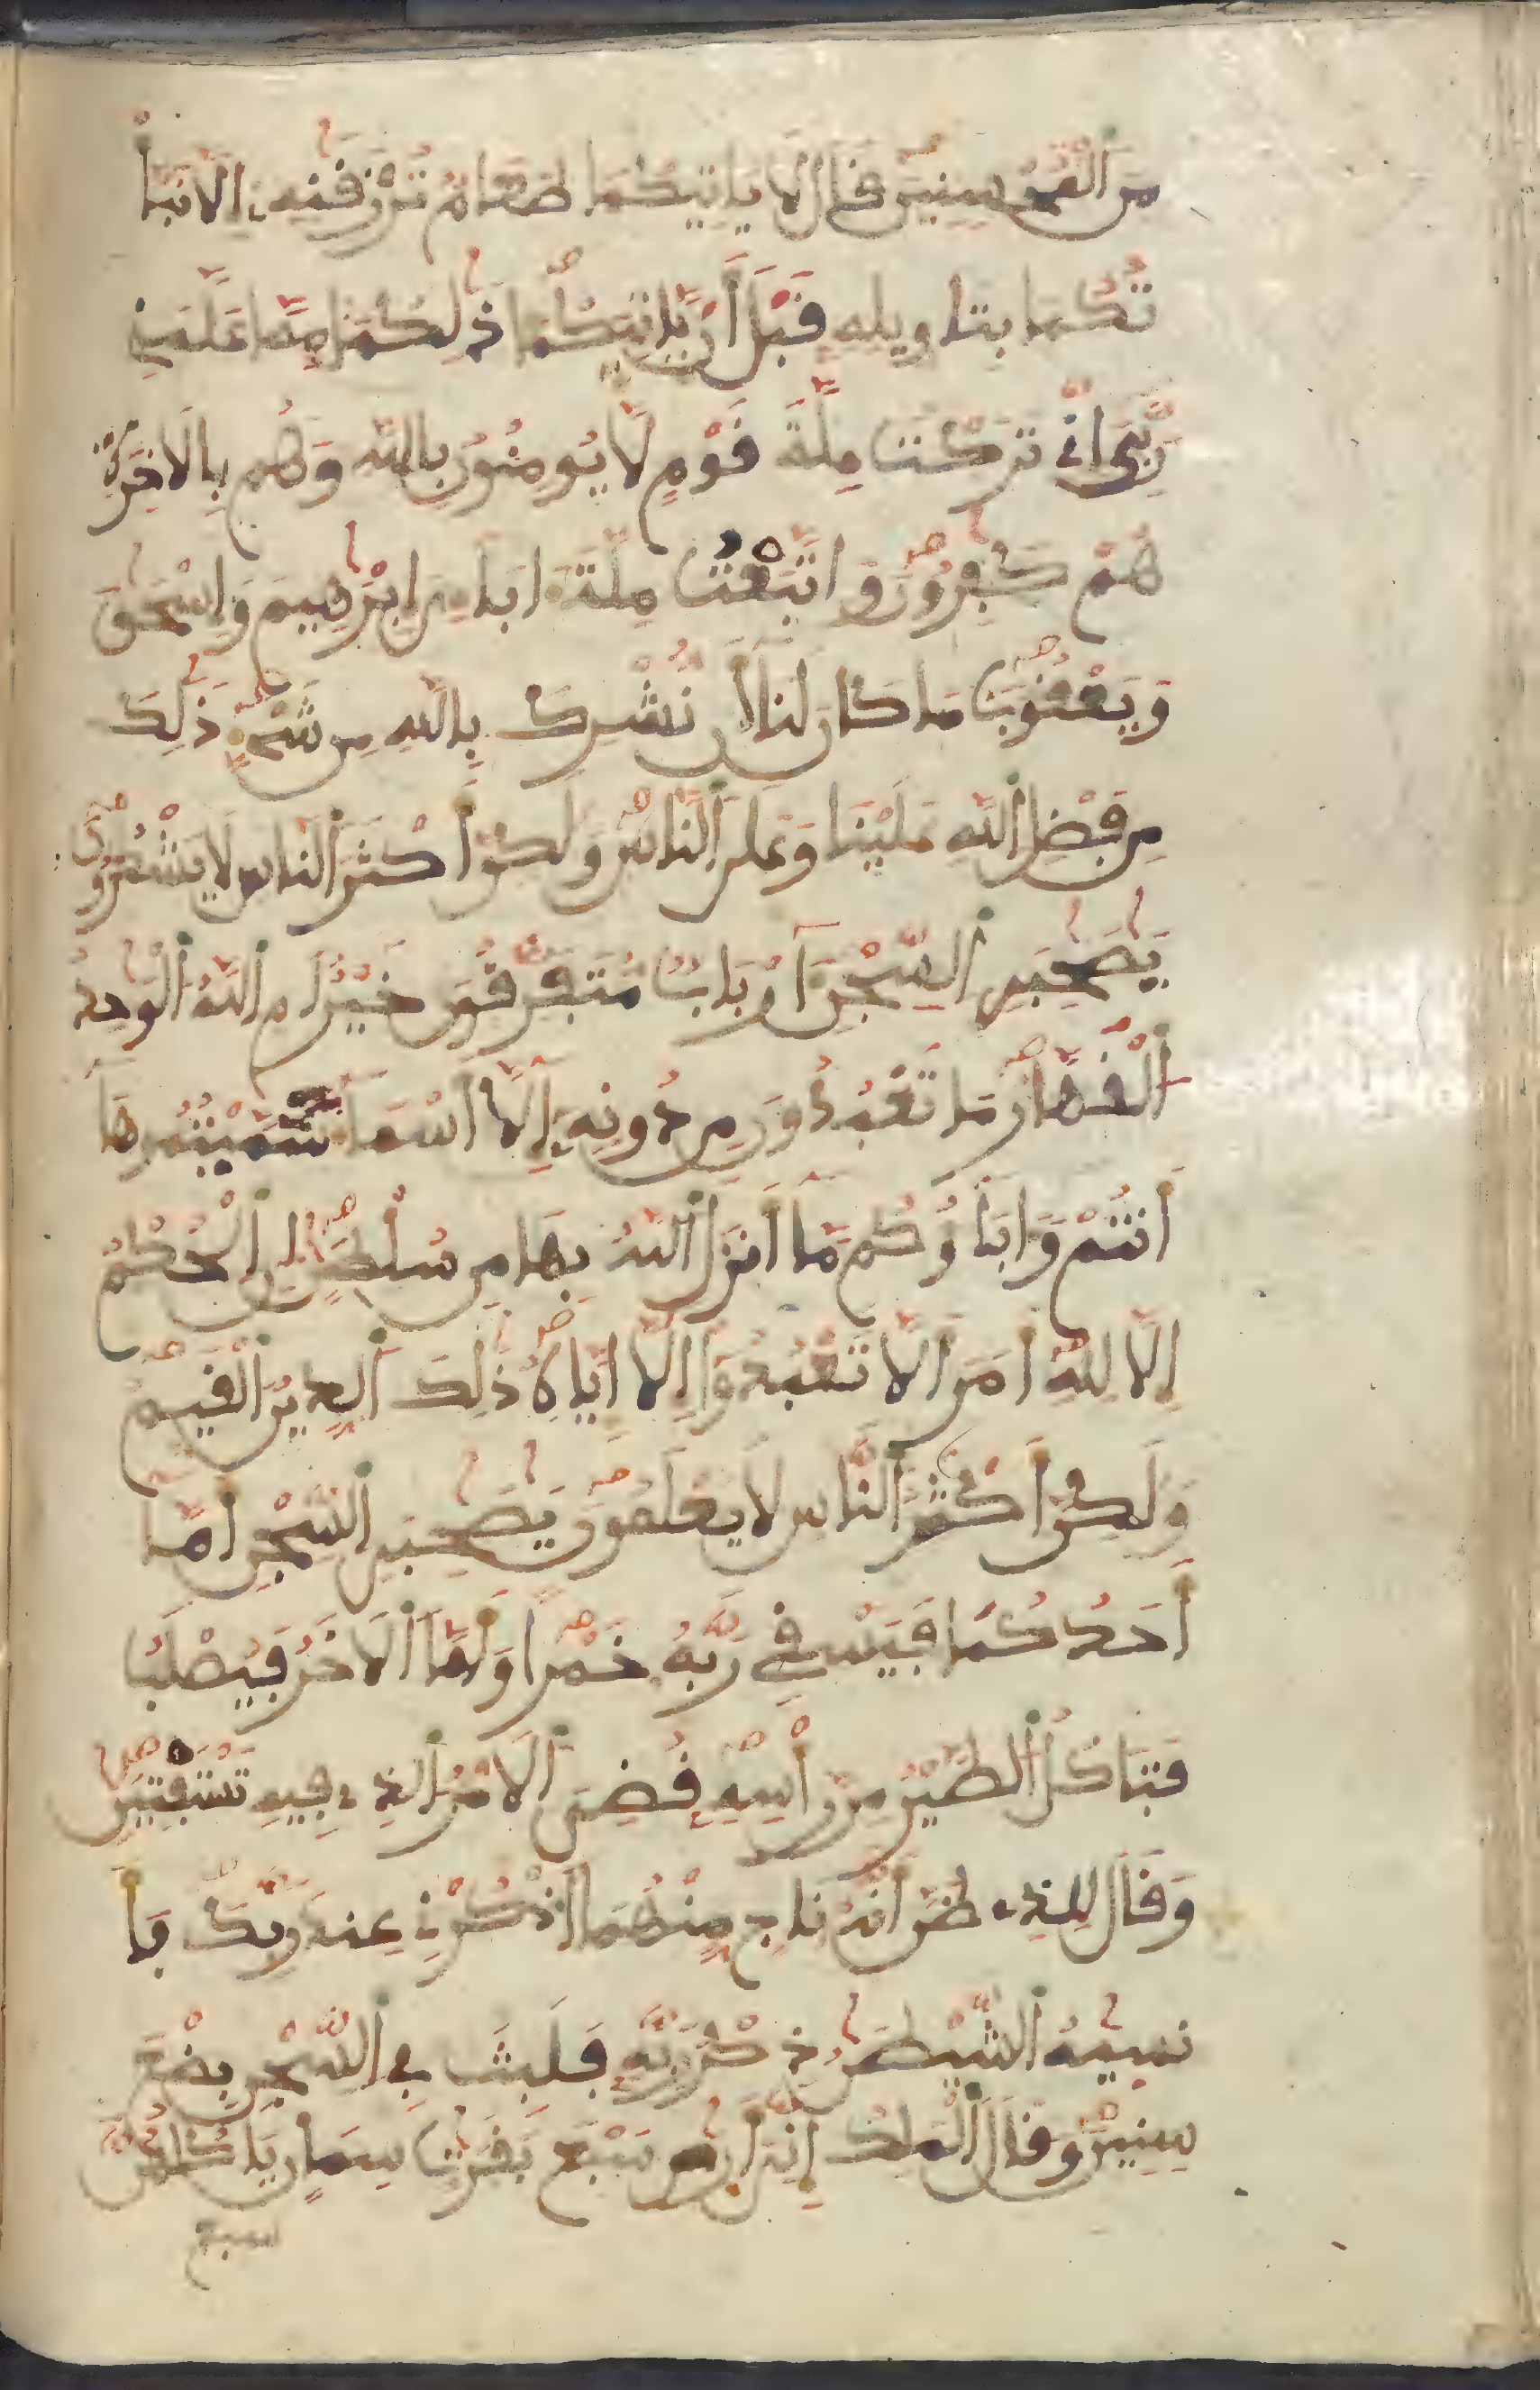 مِنَ الْمُحْسِنِينَ قَالَ لَا يَاتِيكُمَا طَعَامٌ تُرْزَقَنِهِ إِلَّا نَبَّأْ
تُكُمَا بِتَاوِيلِهِ قَبْلَ أَنْ يَّاتِيَكُمَا ذَلِكُمَا مِمَّا عَلَّمَنِي
رَبِّيَ إِنِّي تَرَكْتُ مِلَّةَ قَوْمٍ لَّا يُومِنُونَ بِاللَّهِ وَهُم بِالَاخِرَةِ
هُمْ كَفِرُونَ وَاتَّبَعْتُ مِلَّةَ ابَاءِيَ إِبْرَهِيمَ وَإِسْحَقَ
وَيَعْقُوبَ مَا كَانَ لَنَا أَن نُّشْرِكَ بِاللَّهِ مِن شَيْءٍ ذَلِكَ
مِن فَضْلِ اللَّهِ عَلَيْنَا وَعَلَى النَّاسِ وَلَكِنَّ أَكْثَرَ النَّاسِ لَا يَشْكُرُونَ
يَصَحِبَيِ السِّجْنِ ءَآرْبَابٌ مُّتَفَرِّقُونَ خَيْرٌ أَمِ اللَّهُ الْوَحِدُ
الْقَهَّارُ مَا تَعْبُدُونَ مِن دُونِهِ إِلَّا أَسْمَاءً سَمَّيْتُمُوهَا
أَنتُمْ وَءَابَاؤُكُم مَّا أَنزَلَ اللَّهُ بِهَا مِن سُلْطَنٍ إِنِ الْحُكْمُ
إِلَّا لِلَّهِ أَمَرَ أَلَّا تَعْبُدُوا إِلَّا إِيَّاهُ ذَلِكَ الدِّينُ الْقَيِّمُ
وَلَكِنَّ أَكْثَرَ النَّاسِ لَا يَعْلَمُونَ يَصَحِبَيِ السِّجْنِ أَمَّا
أَحَدُكُمَا فَيَسْقِي رَبَّهُ خَمْرًا وَأَمَّا الَاخَرُ فَيُصْلَبُ
فَتَاكُلُ الطَّيْرُ مِن رَّأْسِهِ قُضِيَ الَامْرُ الَّذِي فِيهِ تَسْتَفْتِيَنِ
وَقَالَ لِلَّذِي ظَنَّ أَنَّهُ نَاجٍ مِّنْهُمَا اذْكُرْنِي عِندَ رَبِّكَ فَأَ
نسِيهُ الشَّيْطَنُ ذِكْرَ رَبِّهِ فَلَبِثَ فِي السِّجْنِ بِضْعَ
سِنِينَ وَقَالَ الْمَلِكُ إِنِّيَ أَرَى سَبْعَ بَقَرَتٍ سِمَانٍ يَاكُلُهُنَّ
سبع